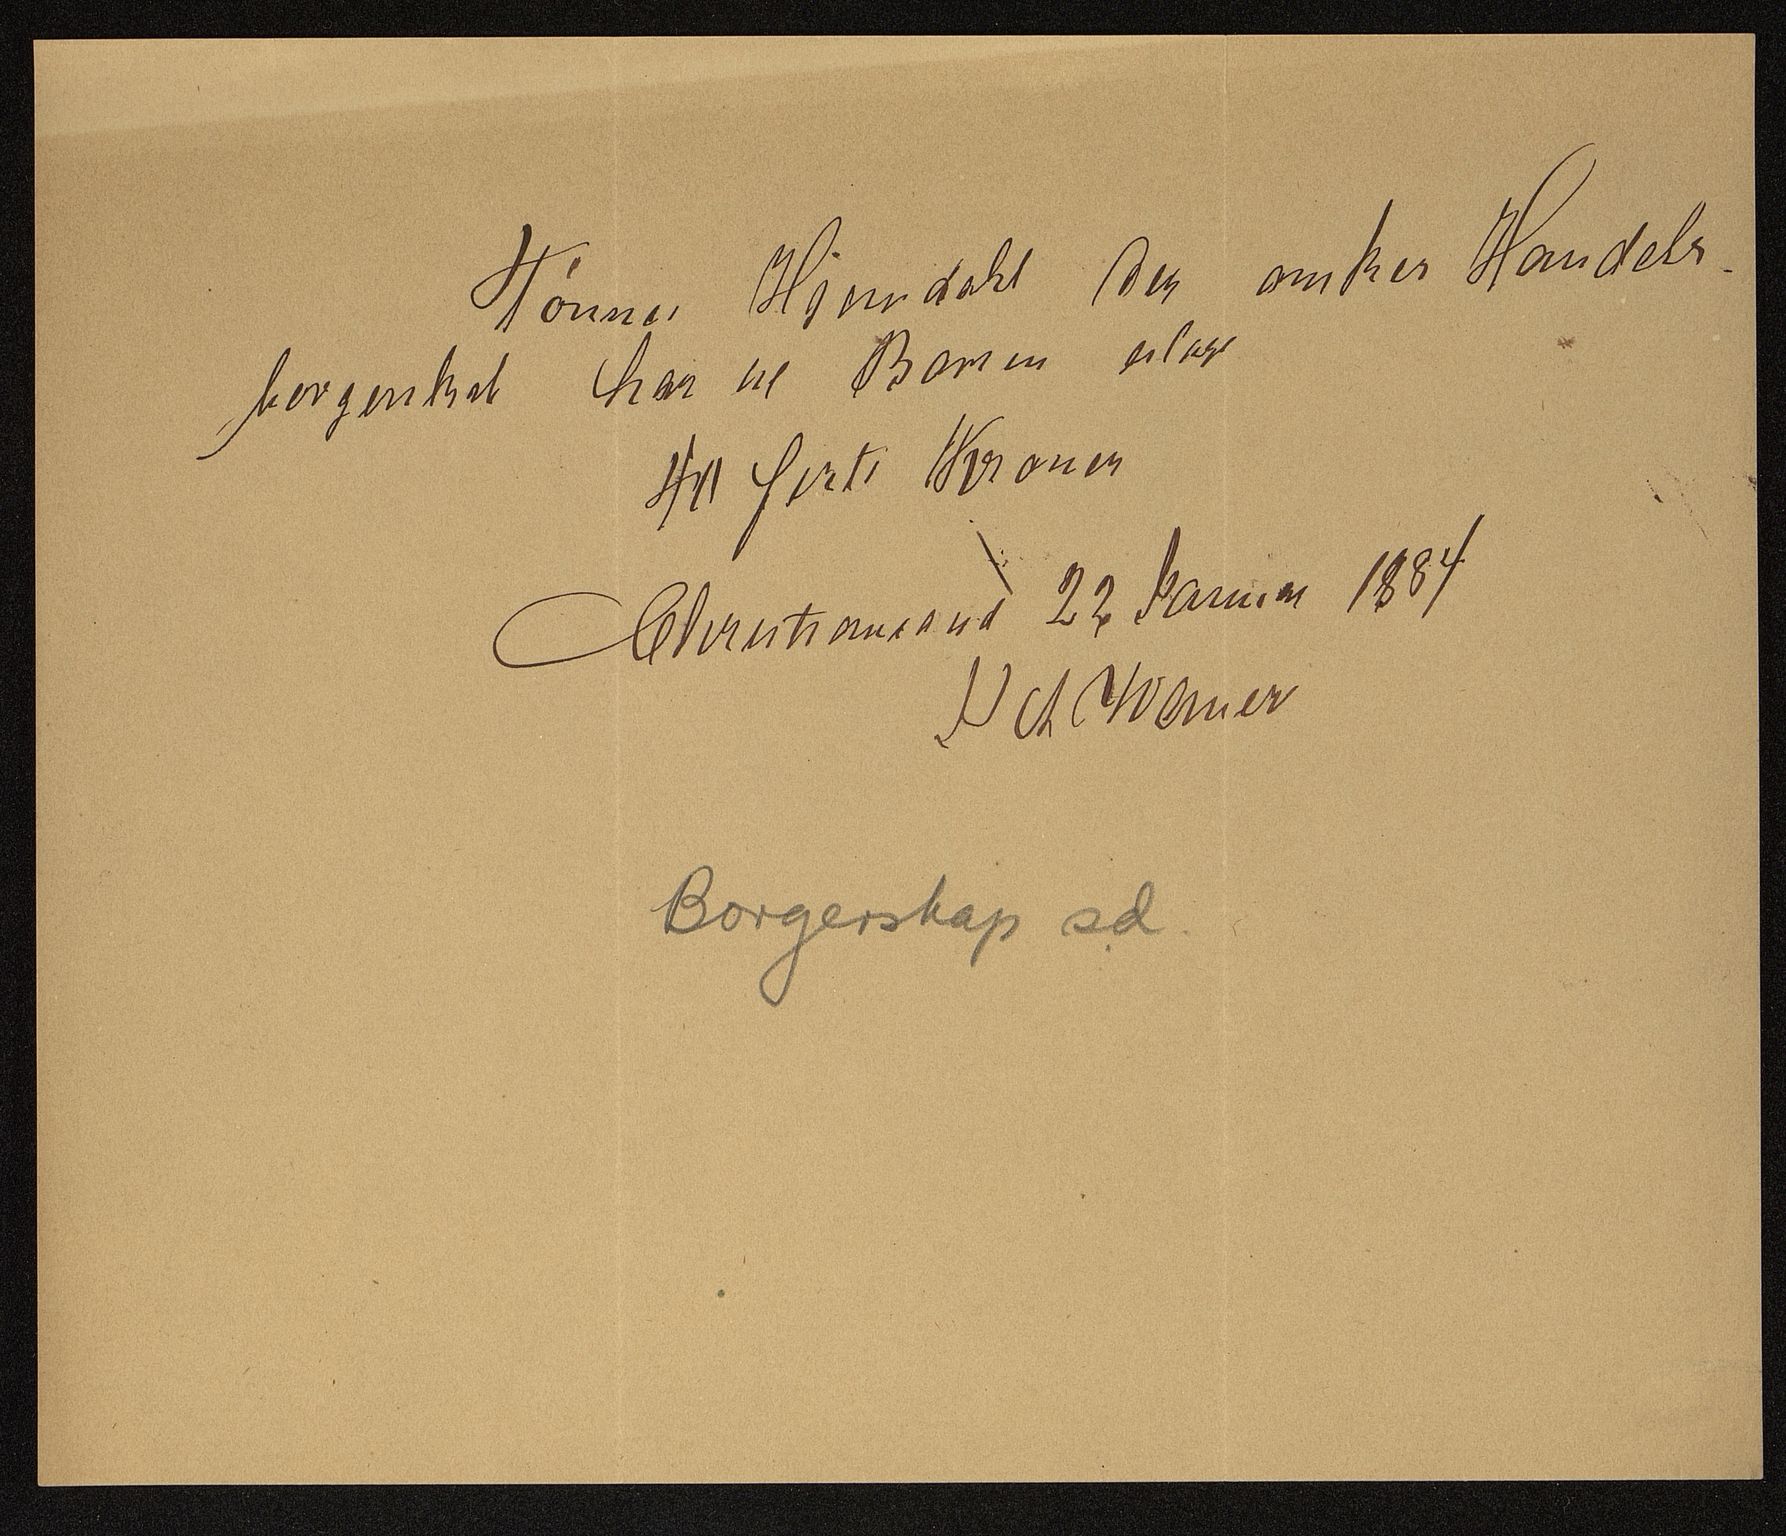 Tønnes Hjemdahl der ønsker Handels-
borgerskab har til Børsen erlagt
40 firti Kroner
Christianssand 22 Januar 1884
Werner
Borgerskap sd.